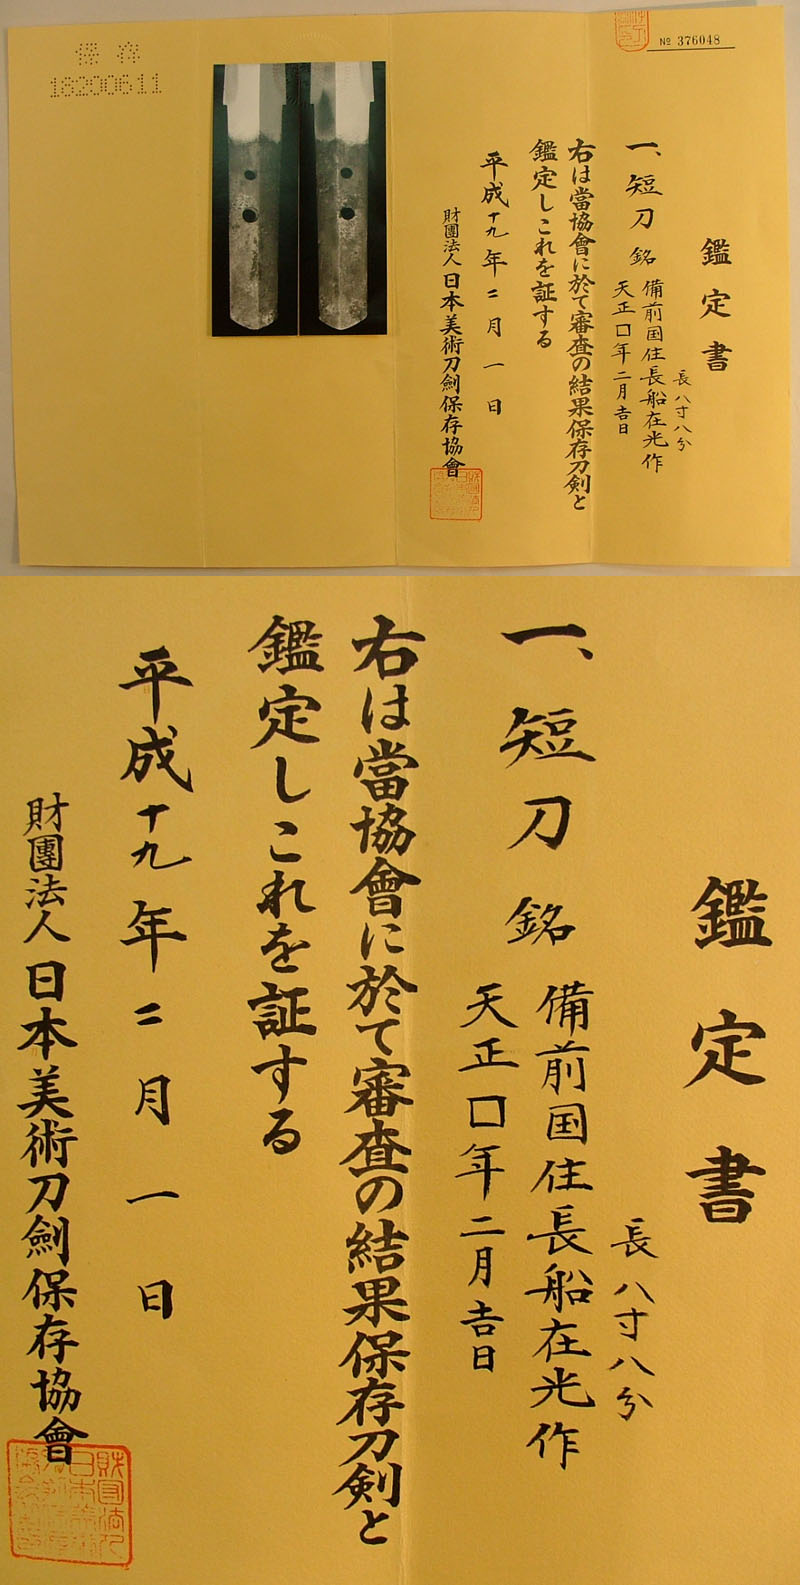 保存
18200611
№ 376048
鑑定書
長八寸八分
一、短刀 銘 備前国住長船在光作
天正□年二月吉日
右は當協會に於て審査の結果保存刀剣と
鑑定しこれを証する
平成十九年二月一日
財團法人日本美術刀劍保存協會
鑑定書
長八寸八分
一、短刀 銘 備前国住長船在光作
天正□年二月吉日
右は當協會に於て審査の結果保存刀剣と
鑑定しこれを証する
平成十九年二月一日
財團法人日本美術刀劍保存協會